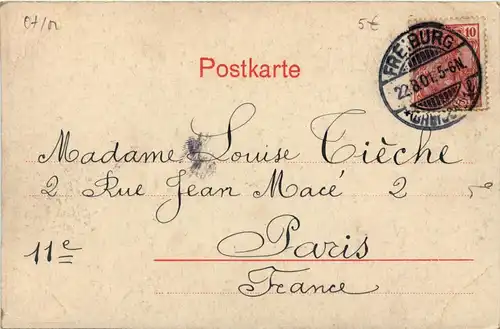 07/01
5€
10
FREIBURG
22.8.01.5-6N.
* (BREISGAU) *
Postkarte
Madame Louise Tièche
2 Rue Jean Macé 2
11e
Paris
France